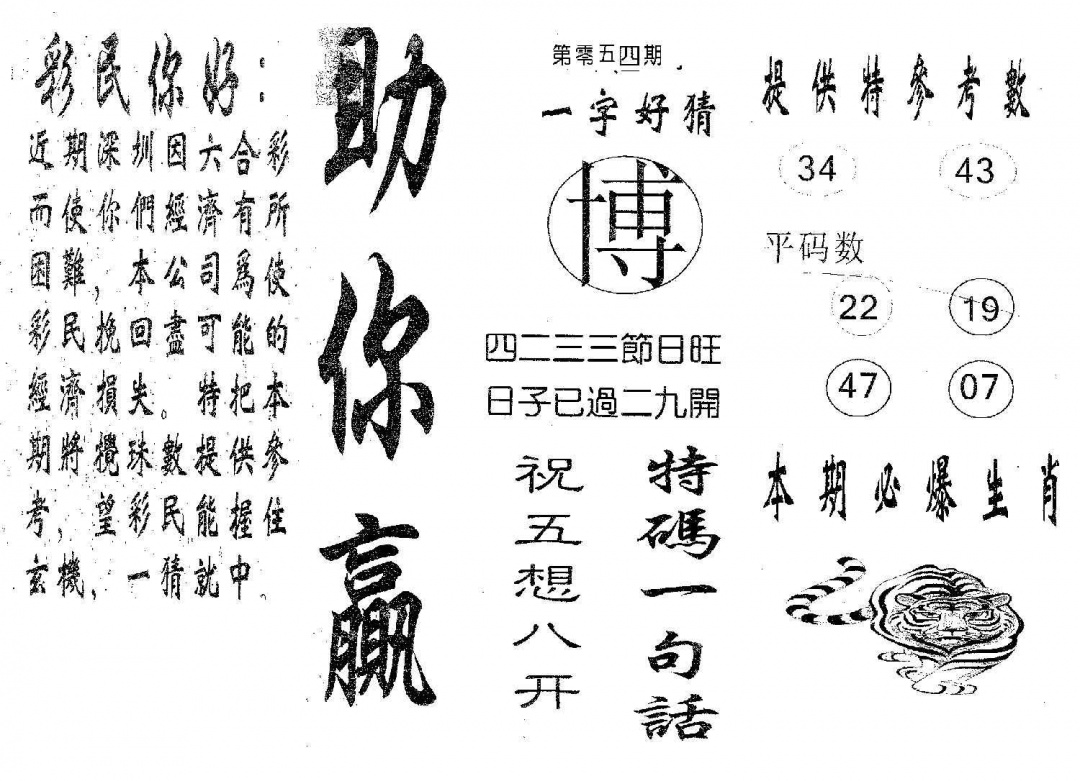 彩民你好：
近期深圳因六合彩
而使你們經濟有所
困難，本公司爲使
彩民挽回盡可能的
經濟損失。特把本
期將攪珠數提供參
考，望彩民能握住
玄機，一猜就中。
助你贏
第零五四期
一字好猜
博
四二三三節日旺
日子已過二九開
特碼一句話
祝五想八开
提供特參考數
34 43
平码数
22 19
47 07
本期必爆生肖